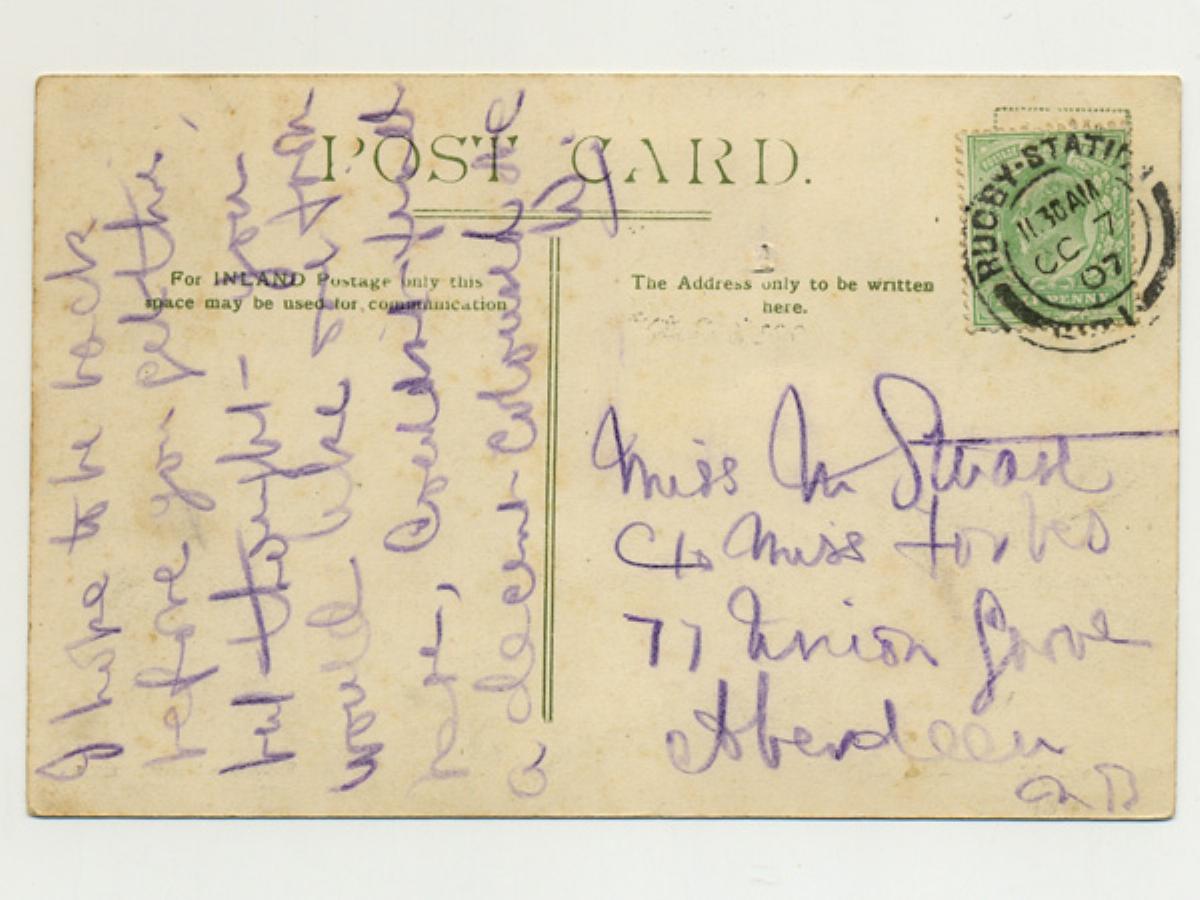 POST CARD.
For INLAND Postage only this
space may be used for communication
The Address only to be written
here.
RUGBY-STATION
11.30 AM
OC 7
07
I hope to be back
before you get this,
but thought you
would like to
Coventry
a decent coloured one
Miss M Stuart
C/o Miss Forbes
77 Union Grove
Aberdeen
NB